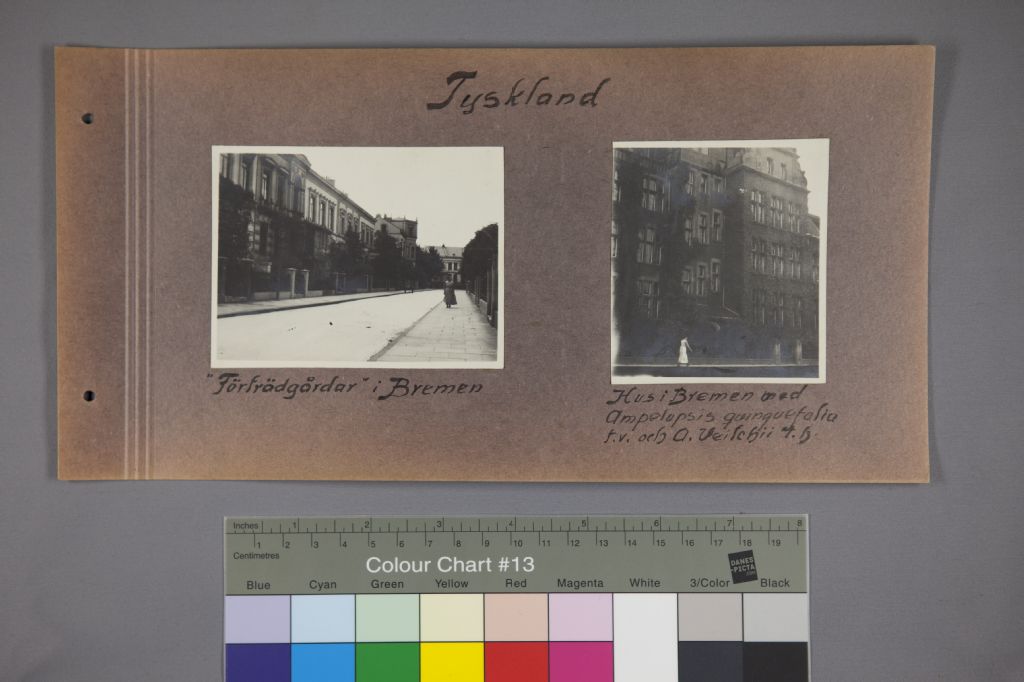 Tyskland
"Förträdgårdar" i Bremen
Hus i Bremen med
Ampelopsis quinquefolia
t.v. och A. Veitchii t.h.
Inches 1 2 3 4 5 6 7 8
1 2 3 4 5 6 7 8 9 10 11 12 13 14 15 16 17 18 19
Centimetres
Colour Chart #13
DANES
-PICTA
.COM
Blue Cyan Green Yellow Red Magenta White 3/Color Black